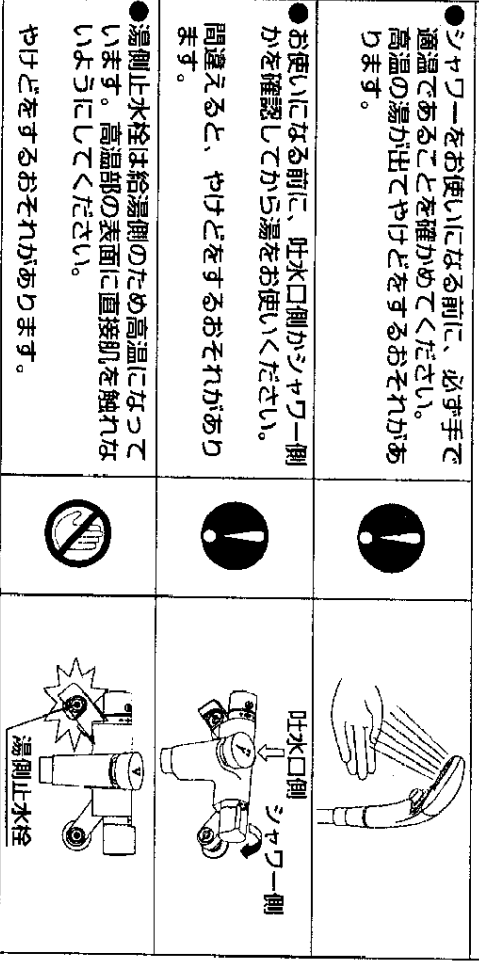 ●シャワーをお使いになる前に、必ず手で
適温であることを確かめてください。
高温の湯が出てやけどをするおそれがあ
ります。
●お使いになる前に、吐水口側かシャワー側
かを確認してから湯をお使いください。
間違えると、やけどをするおそれがあり
ます。
吐水口側
シャワー側
●湯側止水栓は給湯側のため高温になって
います。高温部の表面に直接肌を触れな
いようにしてください。
やけどをするおそれがあります。
湯側止水栓